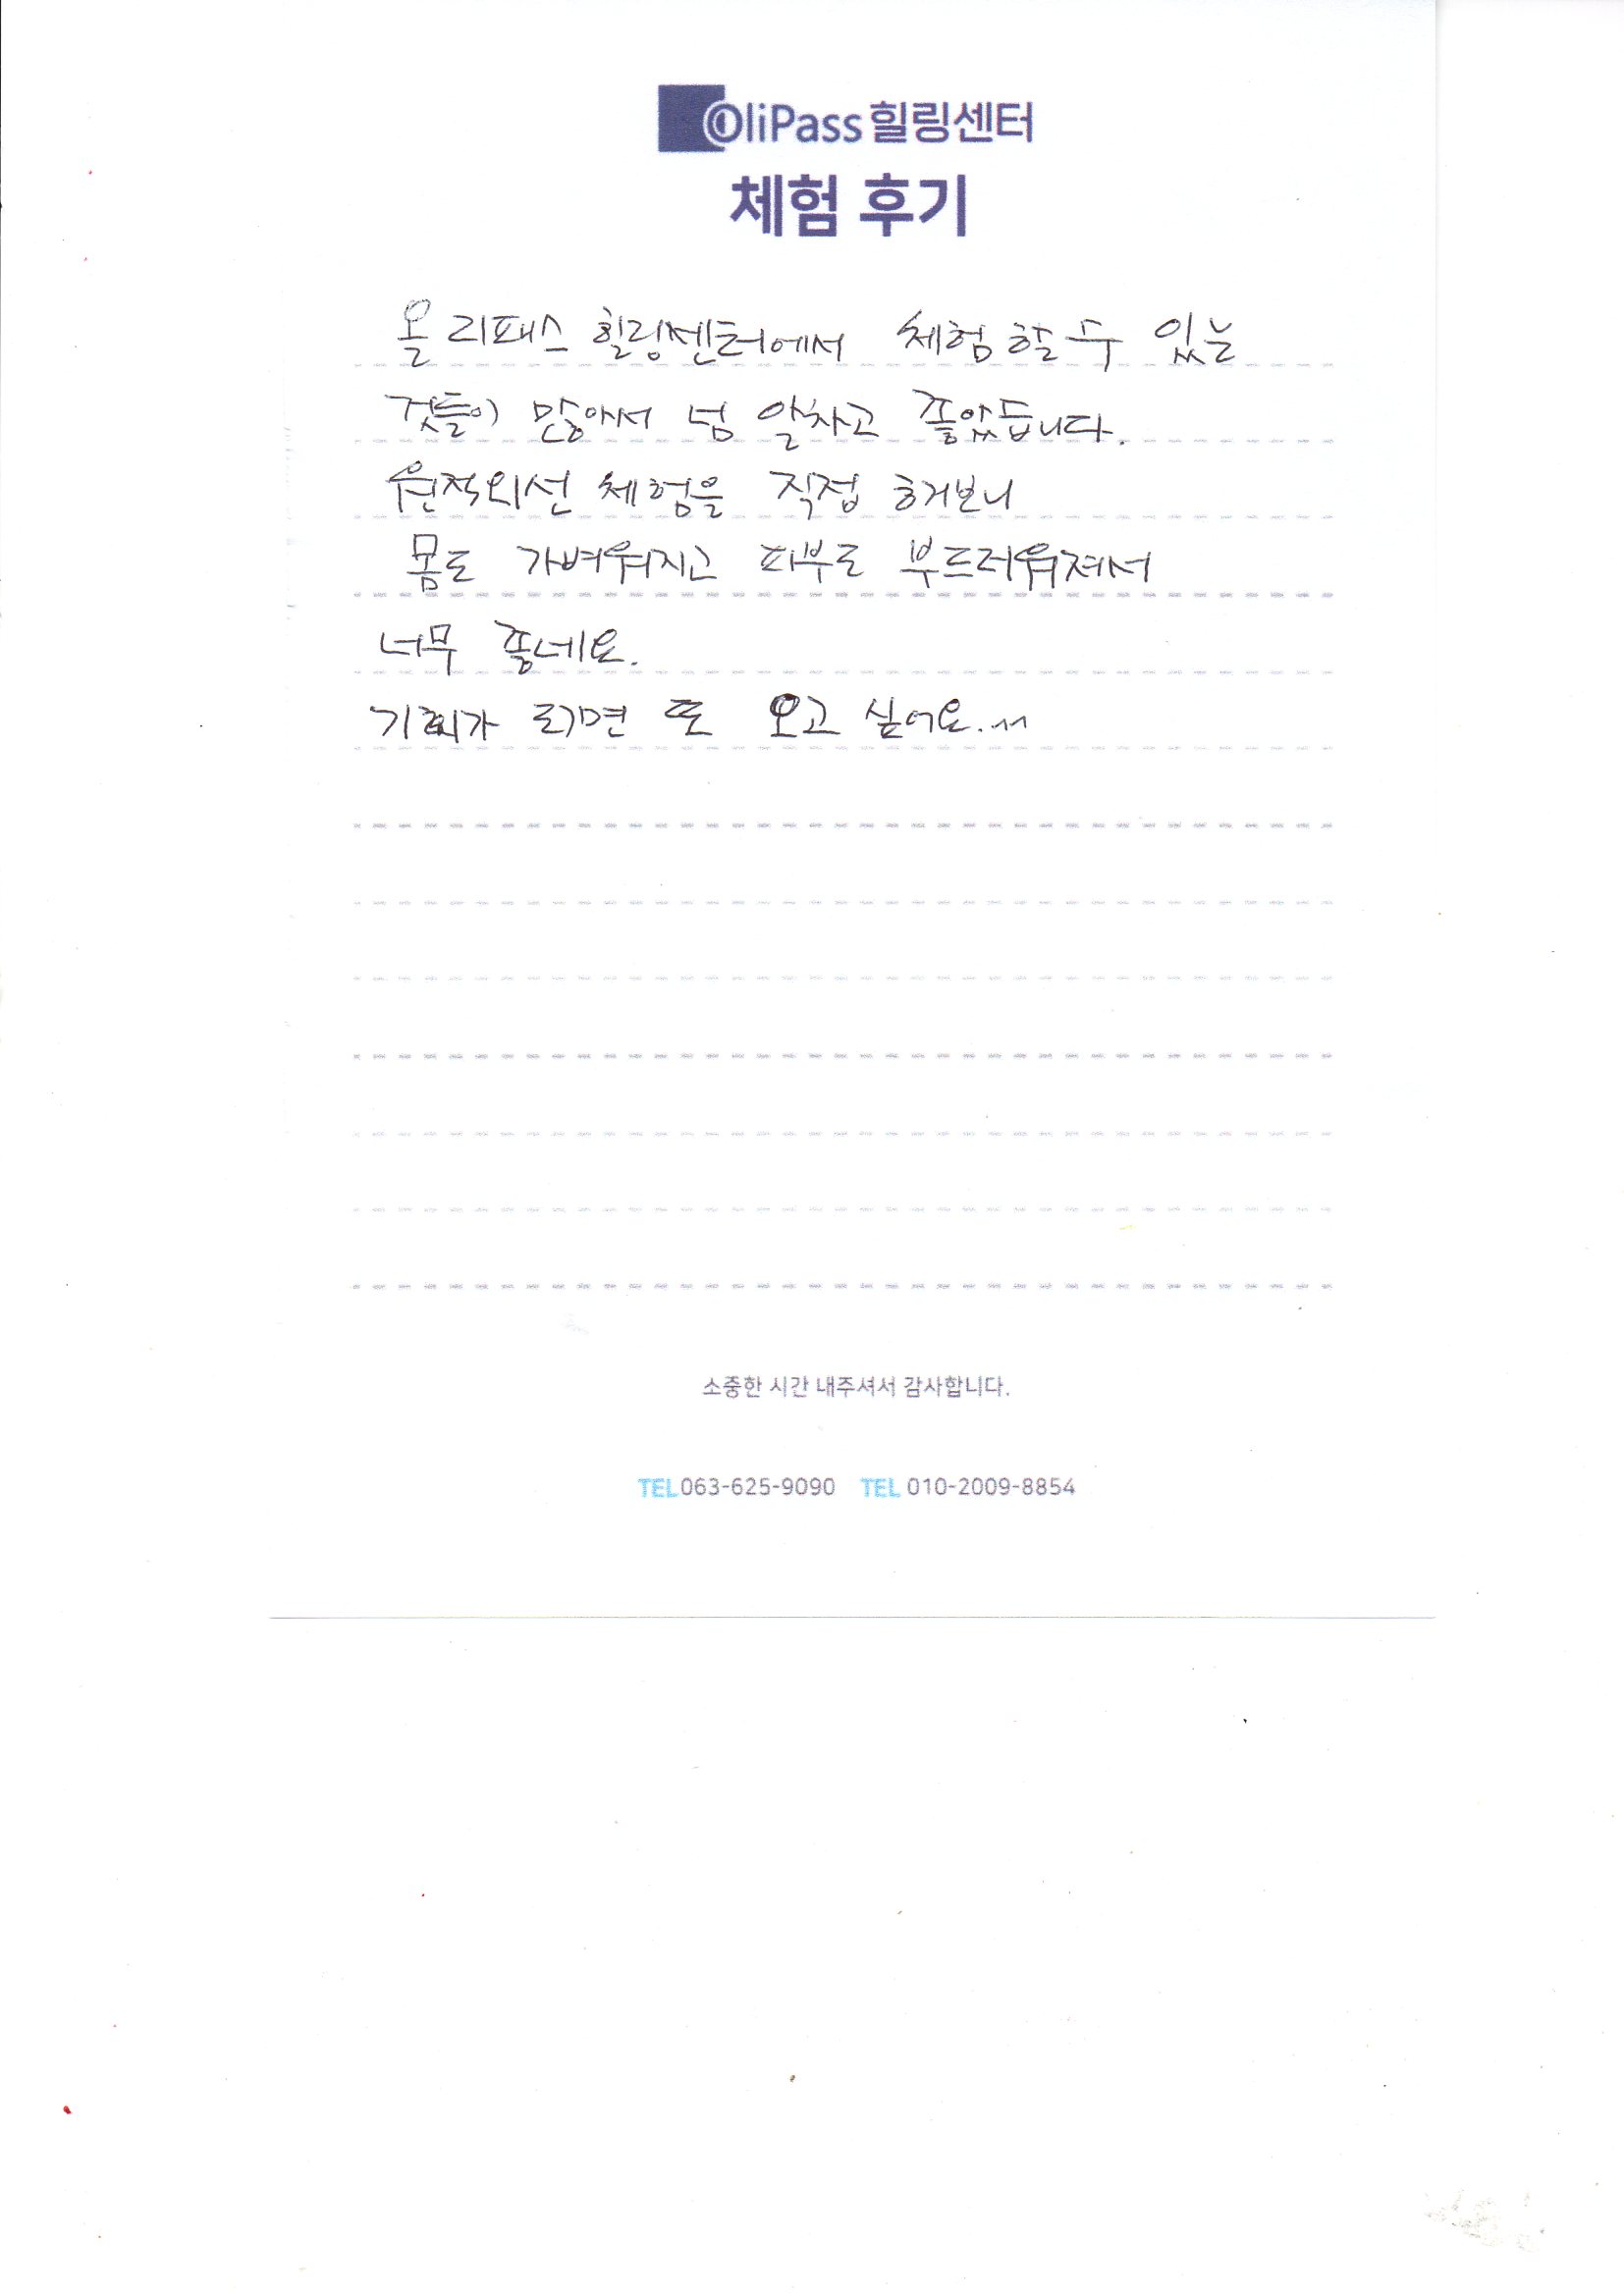 OliPass 힐링센터
체험 후기
올리패스 힐링센터에서 체험 할 수 있는
것들이 많아서 넘 알차고 좋았습니다.
원적외선 체험을 직접 해보니
몸도 가벼워지고 피부도 부드러워져서
너무 좋네요.
기회가 되면 또 오고 싶어요.^^
소중한 시간 내주셔서 감사합니다.
TEL 063-625-9090 TEL 010-2009-8854